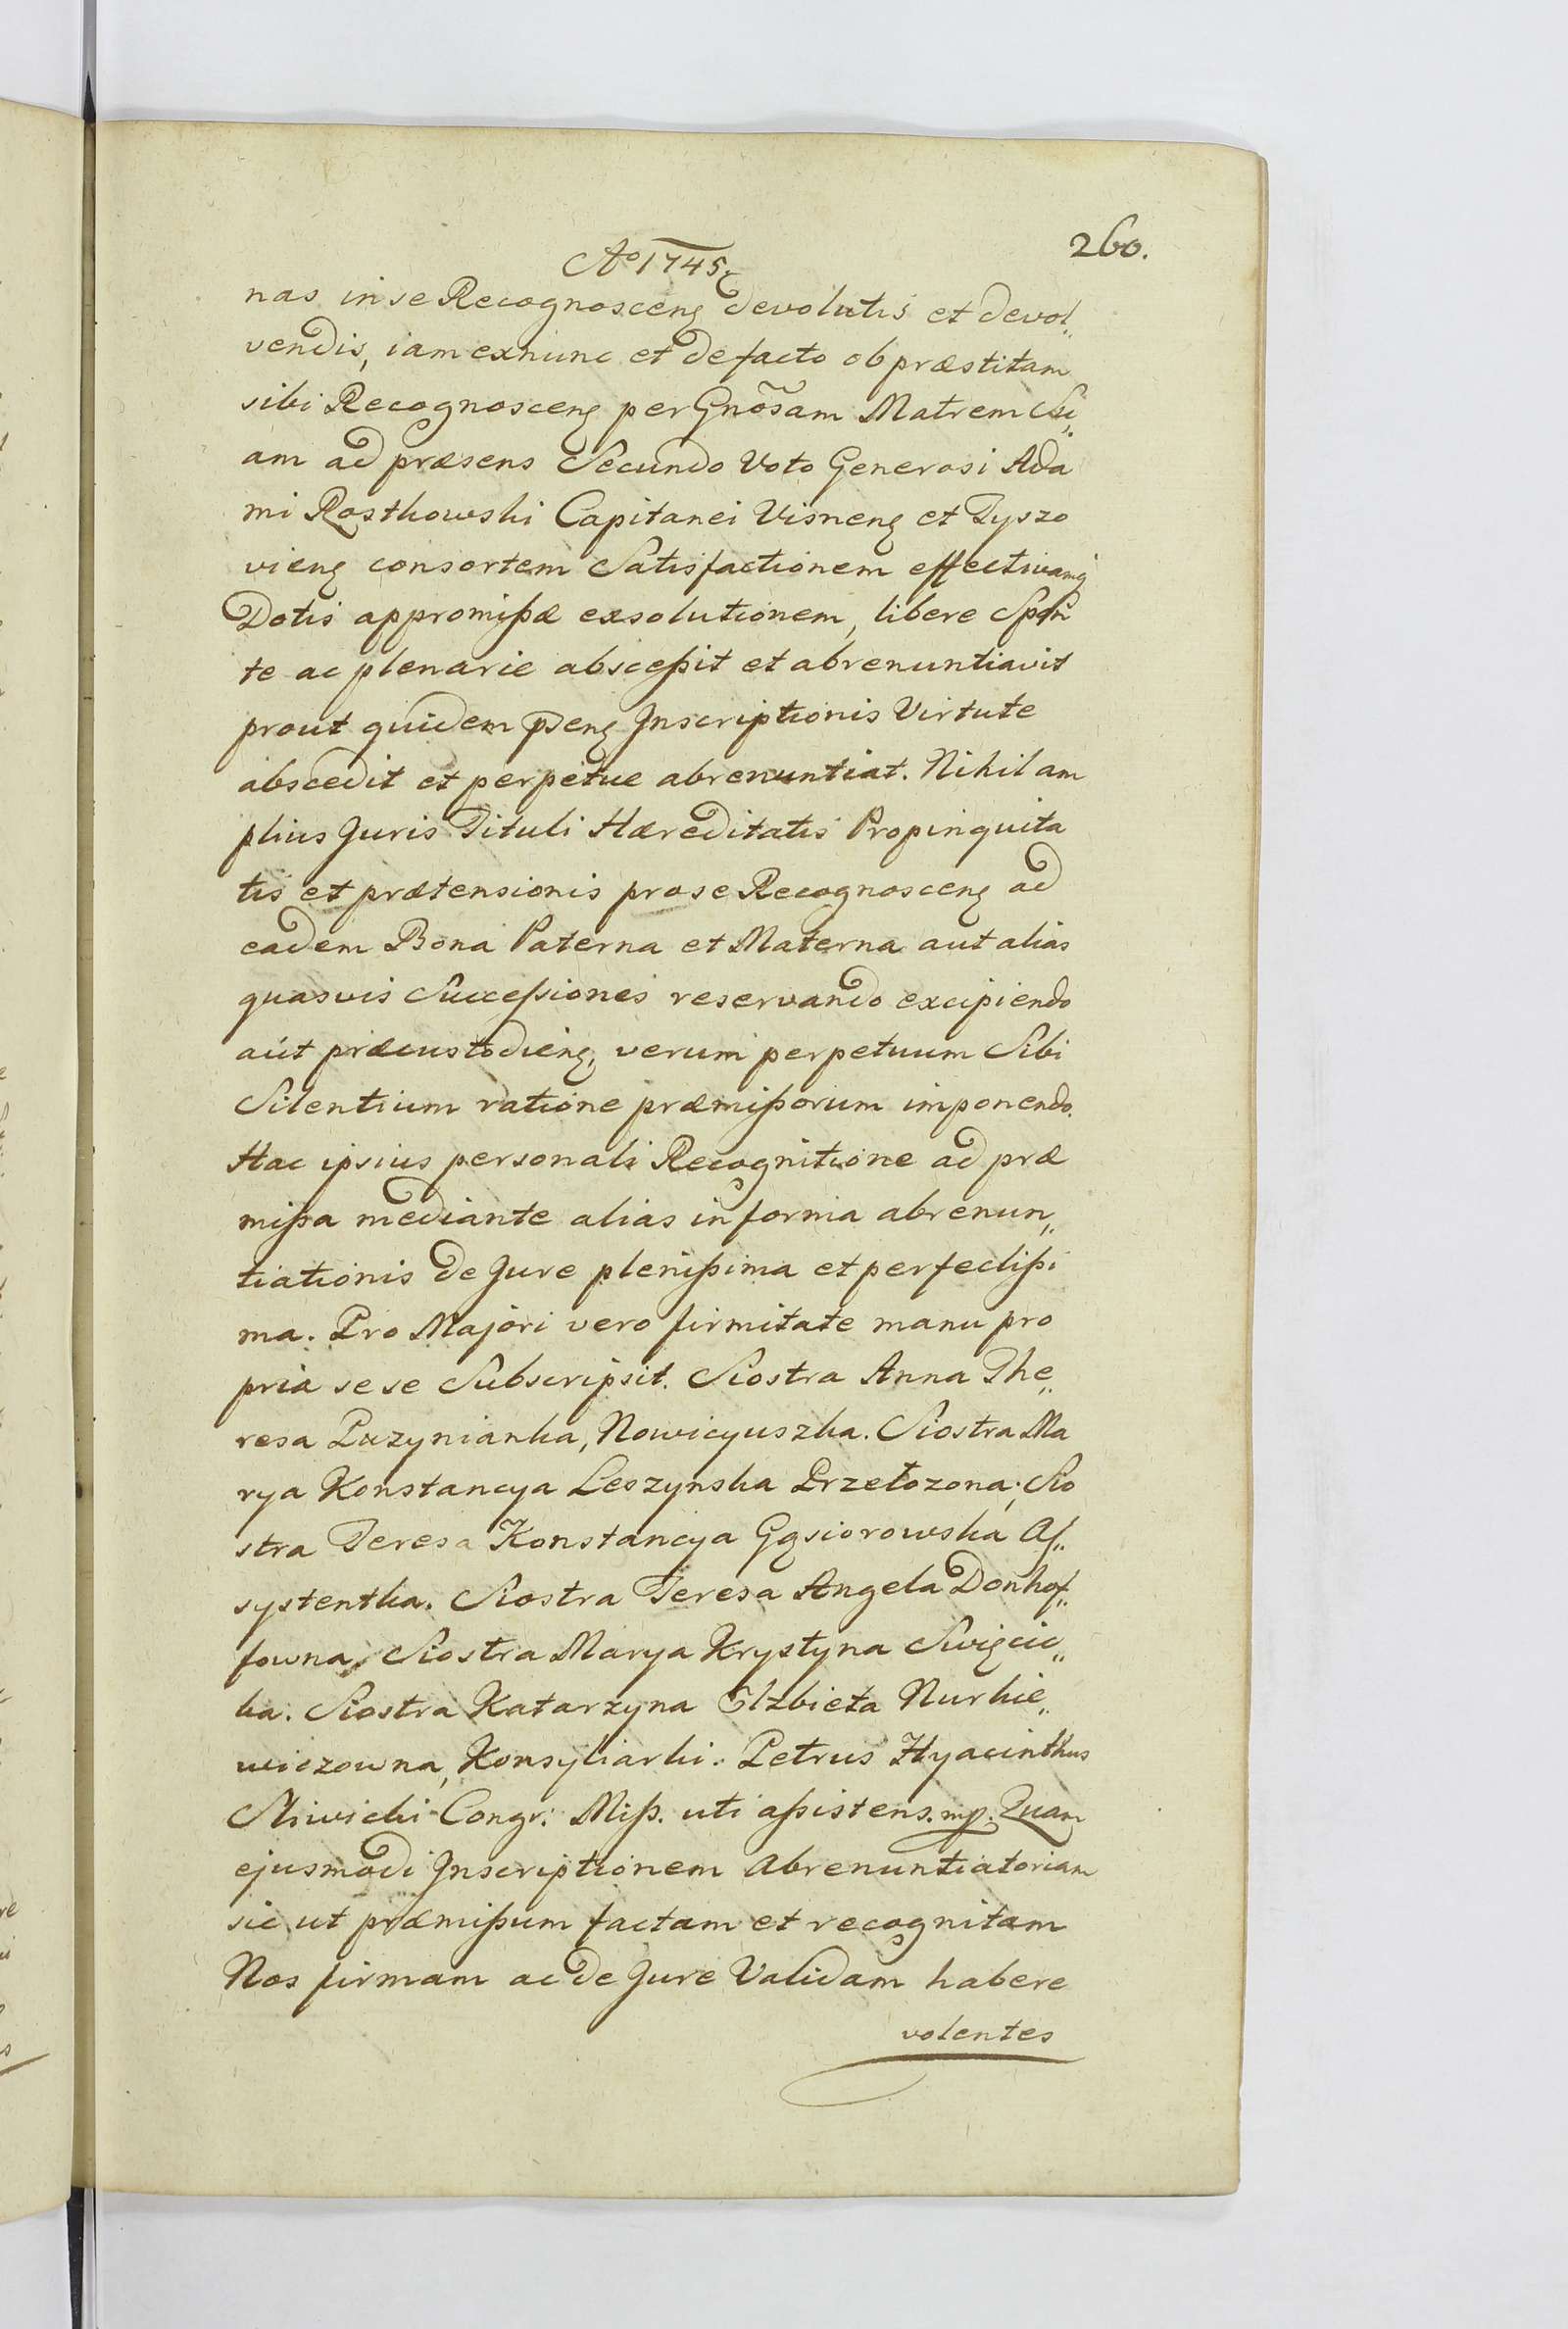 260.
Ao 1745
nas in se Recognoscenꝭ devolutis et devol„
vendis, iam exnunc et defacto ob præstitam
sibi Recognoscenꝭ per Gnõsam Matrem Su„
am ad præsens Secundo Voto Generosi Ada
mi Rostkowski Capitanei Visnenꝭ et Tyszo
vienꝭ consortem Satisfactionem effectivamq
Dotis appromißæ exsolutionem, libere Spon
te ac plenarie absceßit et abrenuntiavit
prout quidem pꝛ̃senꝭ Inscriptionis Virtute
abscedit et perpetue abrenuntiat. Nihil am
plius Juris Tituli Hæreditatis Propinquita
tis et prætensionis pro se Recognoscenꝭ ad
eadem Bona Paterna et Materna aut alias
quasvis Succeßiones reservando excipiendo
aut præcustodienꝭ, verum perpetuum Sibi
Silentium ratione præmißorum imponendo.
Hac ipsius personali Recognitione ad præ
mißa mediante alias in forma abrenun„
tiationis de Jure plenißima et perfectißi
ma. Pro Majori vero firmitate manu pro
pria sese Subscripsit. Siostra Anna The„
resa Puzynianka, Nowicyuszka. Siostra Ma
rya Konstancya Leszynska Przełozona; Sio
stra Teresa Konstancya Gąsiorowska As„
systentka. Siostra Teresa Angela Donhof„
fowna, Siostra Marya Krystyna Swięcic„
ka. Siostra Katarzyna Elzbieta Nurkie„
wiczowna, Konsyliarki. Petrus Hyacinthus
Sliwicki Congr: Miß. uti aßistens. mp. Quam
ejusmodi Inscriptionem Abrenuntiatoriam
sic ut præmißum factam et recognitam
Nos firmam ac de Jure Validam habere
volentes